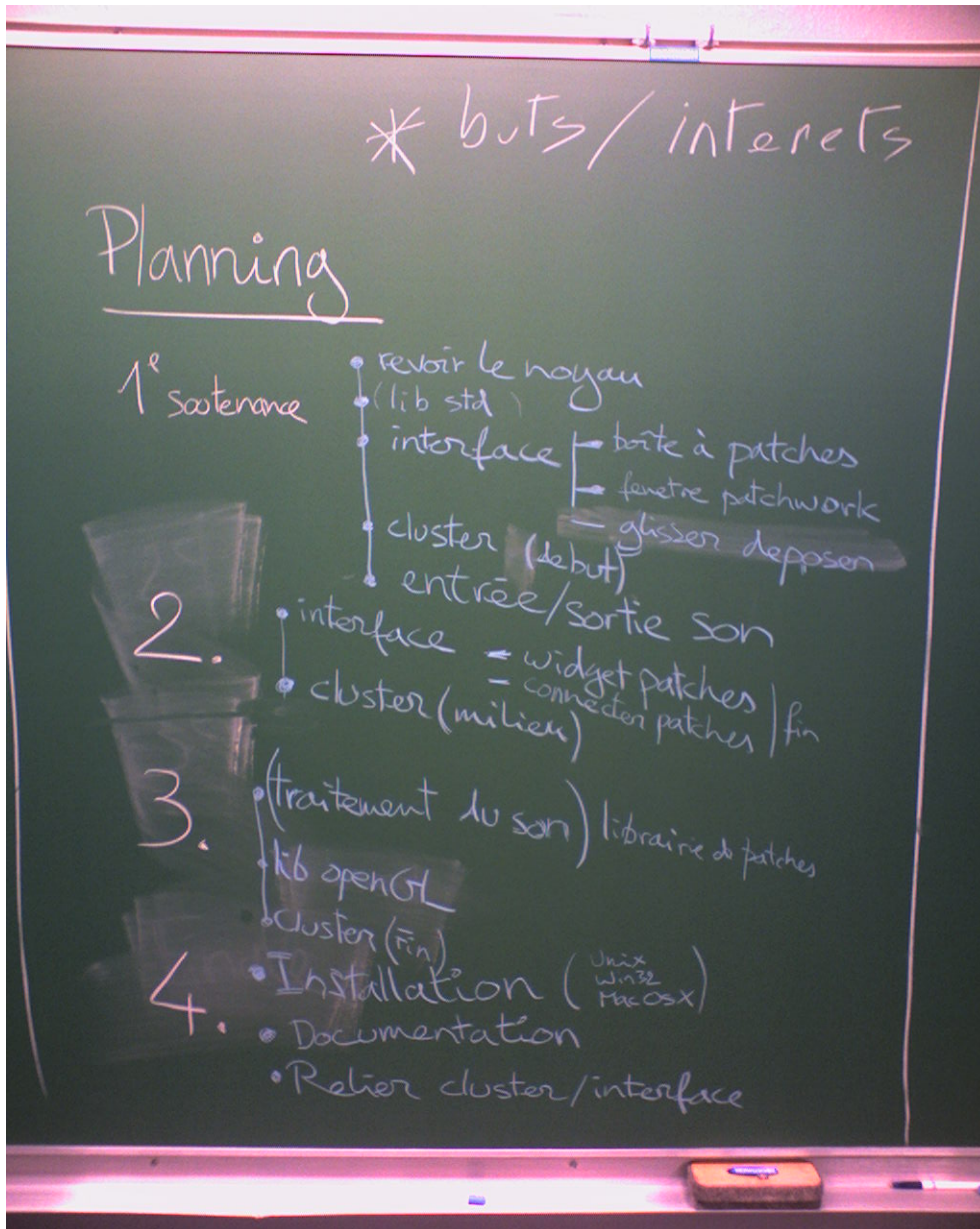 * buts / interets
Planning
1e soutenance
revoir le noyau
(lib std)
interface
boîte à patches
fenetre patchwork
glisser deposer
cluster (debut)
entrée/sortie son
2.
interface
- widget patches
- connecter patches
fin
cluster (milieu)
3.
(traitement du son) librairie de patches
lib openGL
cluster (Fin)
4.
Installation (Unix
Win32
MacOSX)
Documentation
Relier cluster/interface